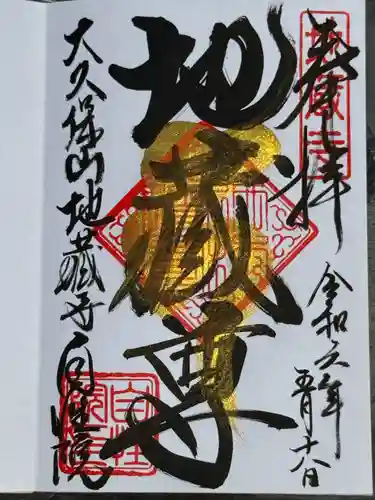 奉拝
令和六年
五月十八日
地蔵尊
大久保山地蔵寺自性院